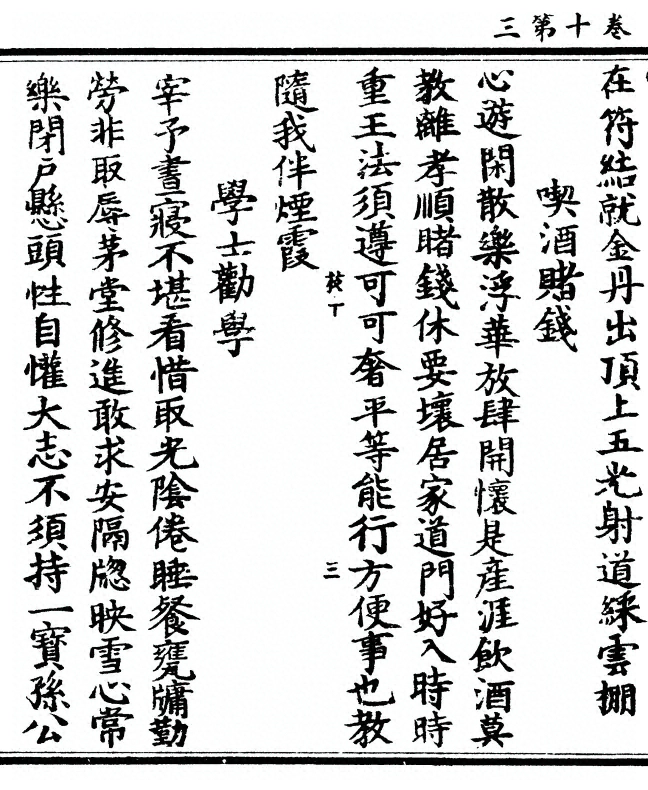 卷十第三
在符結就金丹出頂上五光射道綵雲掤
喫酒賭錢
心遊閑散樂浮華放肆開懷是產涯飲酒莫
教離孝順賭錢休要壞居家道門好入時時
重王法須遵可可奢平等能行方便事也教
隨我伴煙霞
三
學士勸學
宰予晝寢不堪看惜取光陰倦睡餐甕牖勤
勞非取辱茅堂修進敢求安隔牕映雪心常
樂閉戶懸頭性自懽大志不須持一寶孫公